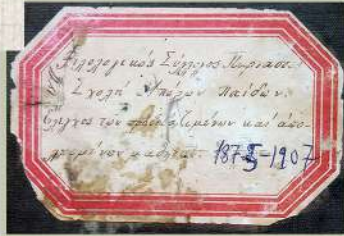 Φιλολογικός Σύλλογος Παρνασσ.
Σχολή Ἀπόρων Παίδων.
Ἔλεγχος τῶν προσερχομένων καὶ ἀπο-
μαθητῶν. 1875-1907